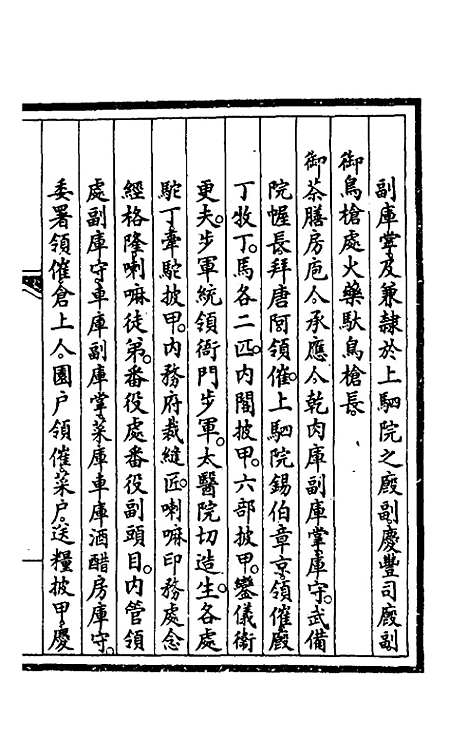 副庫掌及兼隸於上駟院之廄副慶豐司廄副
御鳥槍處火藥馱鳥槍長
御茶膳房庖人承應人乾肉庫副庫掌庫守武備
院幄長拜唐阿領催上駟院錫伯章京領催廄
丁牧丁馬各二匹內閣披甲六部披甲鑾儀衛
更夫步軍統領衙門步軍太醫院切造生各處
駝丁牽駝披甲內務府裁縫匠喇嘛印務處念
經格隆喇嘛徒弟番役處番役副頭目內管領
處副庫守車庫副庫掌菜庫車庫酒醋房庫守
委署領催倉上人園戶領催菜戶送糧披甲慶